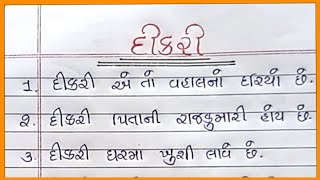 દીકરી
1. દીકરી એ તો વહાલનો દરિયો છે.
૨. દીકરી પિતાની રાજકુમારી હોય છે.
૩. દીકરી ઘરમા ખુશી લાવે છે.